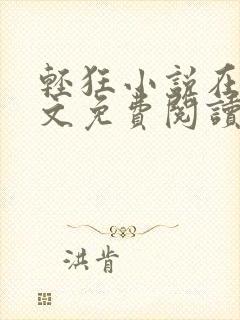 輕狂小說在
文免費閱讀
洪肯